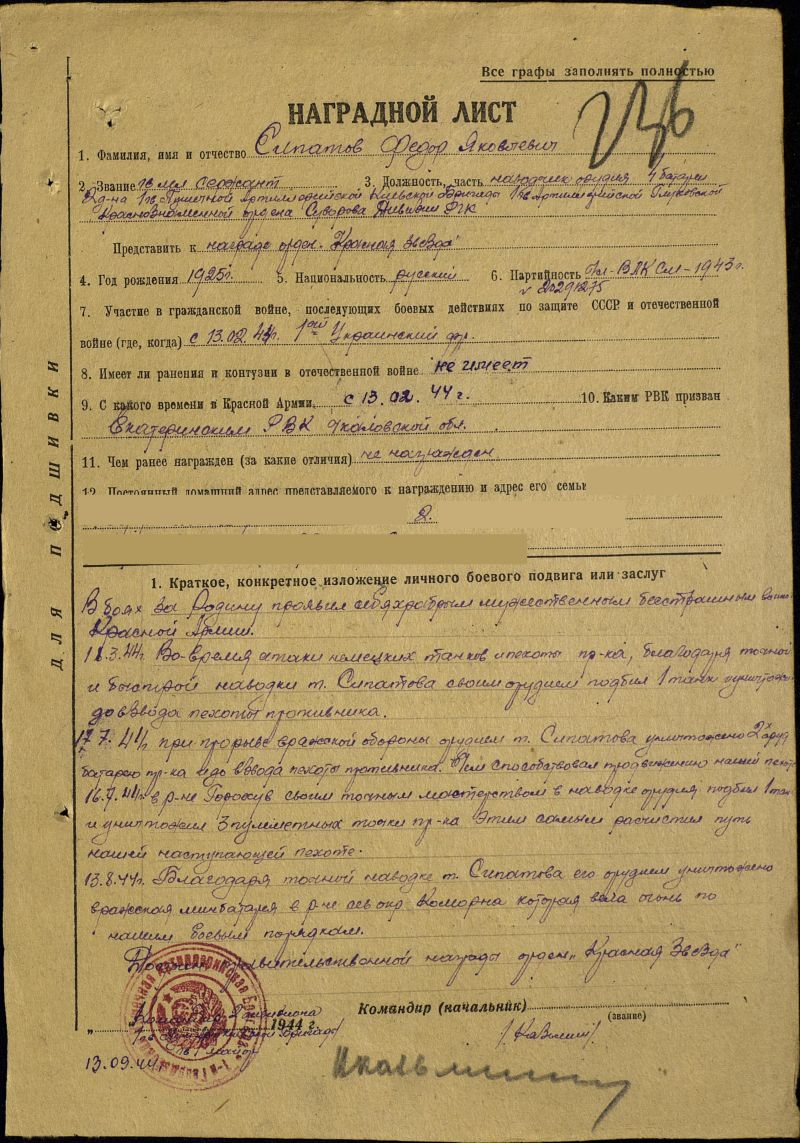 Все графы заполнять полностью
НАГРАДНОЙ ЛИСТ
236
1. Фамилия, имя и отчество Сипатов Федор Яковлевич
2. Звание мл сержант 3. Должность, часть наводчик орудия 4 батареи
2 д-на 1 гв. Пушечной Артиллерийской Киевской бригады 1 гв Артиллерийской Глуховской
Краснознаменной ордена Суворова Дивизии РГК
Представить к награде орден. "Красная звезда"
4. Год рождения 1925г. 5. Национальность русский 6. Партийность Чл-ВЛКСМ-1943г.
7. Участие в гражданской войне, последующих боевых действиях по защите СССР и отечественной
войне (где, когда) с 13.02.44г. 1ый Украинский фр.
8. Имеет ли ранения и контузии в отечественной войне не имеет
9. С какого времени в Красной Армии с 13.02.44г. 10. Каким РВК призван
Екатеринским РВК Чкаловской обл.
11. Чем ранее награжден (за какие отличия) не награжден
12. Постоянный домашний адрес представляемого к награждению и адрес его семьи
ДЛЯ ПОДШИВКИ
1. Краткое, конкретное изложение личного боевого подвига или заслуг
В боях за Родину проявил себя храбрым мужественным бесстрашным воином
Красной Армии.
11.3.44г. Во-время атаки немецких танков и пехоты пр-ка, благодаря точной
и быстрой наводки т. Сипатова своим орудием подбил 1 танк и уничтожил
до взвода пехоты противника.
7.44г при прорыве вражеской обороны орудием т. Сипатова уничтожено 2х
батарею пр-ка и до взвода пехоты противника. Чем способствовал продвижению нашей пехоты
16.7.44г в р-не Горохув своим точным мастерством в наводке орудия подбил 1 танк
и уничтожил 3 пулеметных точки пр-ка этим самым расчистил путь
нашей наступающей пехоте.
13.8.44г. Благодаря точной наводке т. Сипатова его орудием уничтожено
вражеская минбатарея в р-не сев окр Коморна которая вела огонь по
нашим боевым порядкам.
правительственной награды орден "Красная Звезда"
Командир дивизиона
Командир (начальник)
(звание)
1944 г.
бригады
майор
/Казьмин/
13.09.44